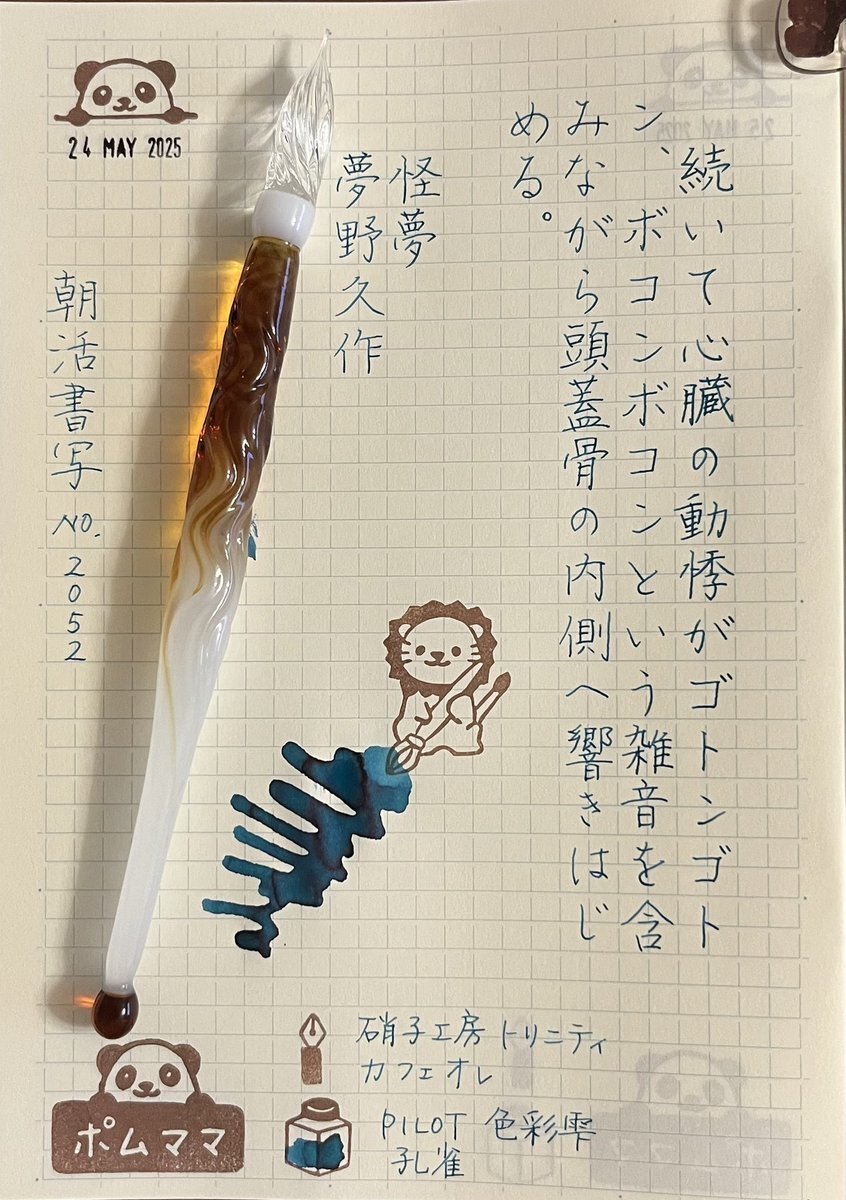 続いて心臓の動悸がゴトンゴト
ン、ボコンボコンという雑音を含
みながら頭蓋骨の内側へ響きはじ
める。
怪夢
夢野久作
24 MAY 2025
朝活書写 NO.2052
硝子工房 トリニティ
カフェオレ
PILOT 色彩雫
孔雀
ポムママ